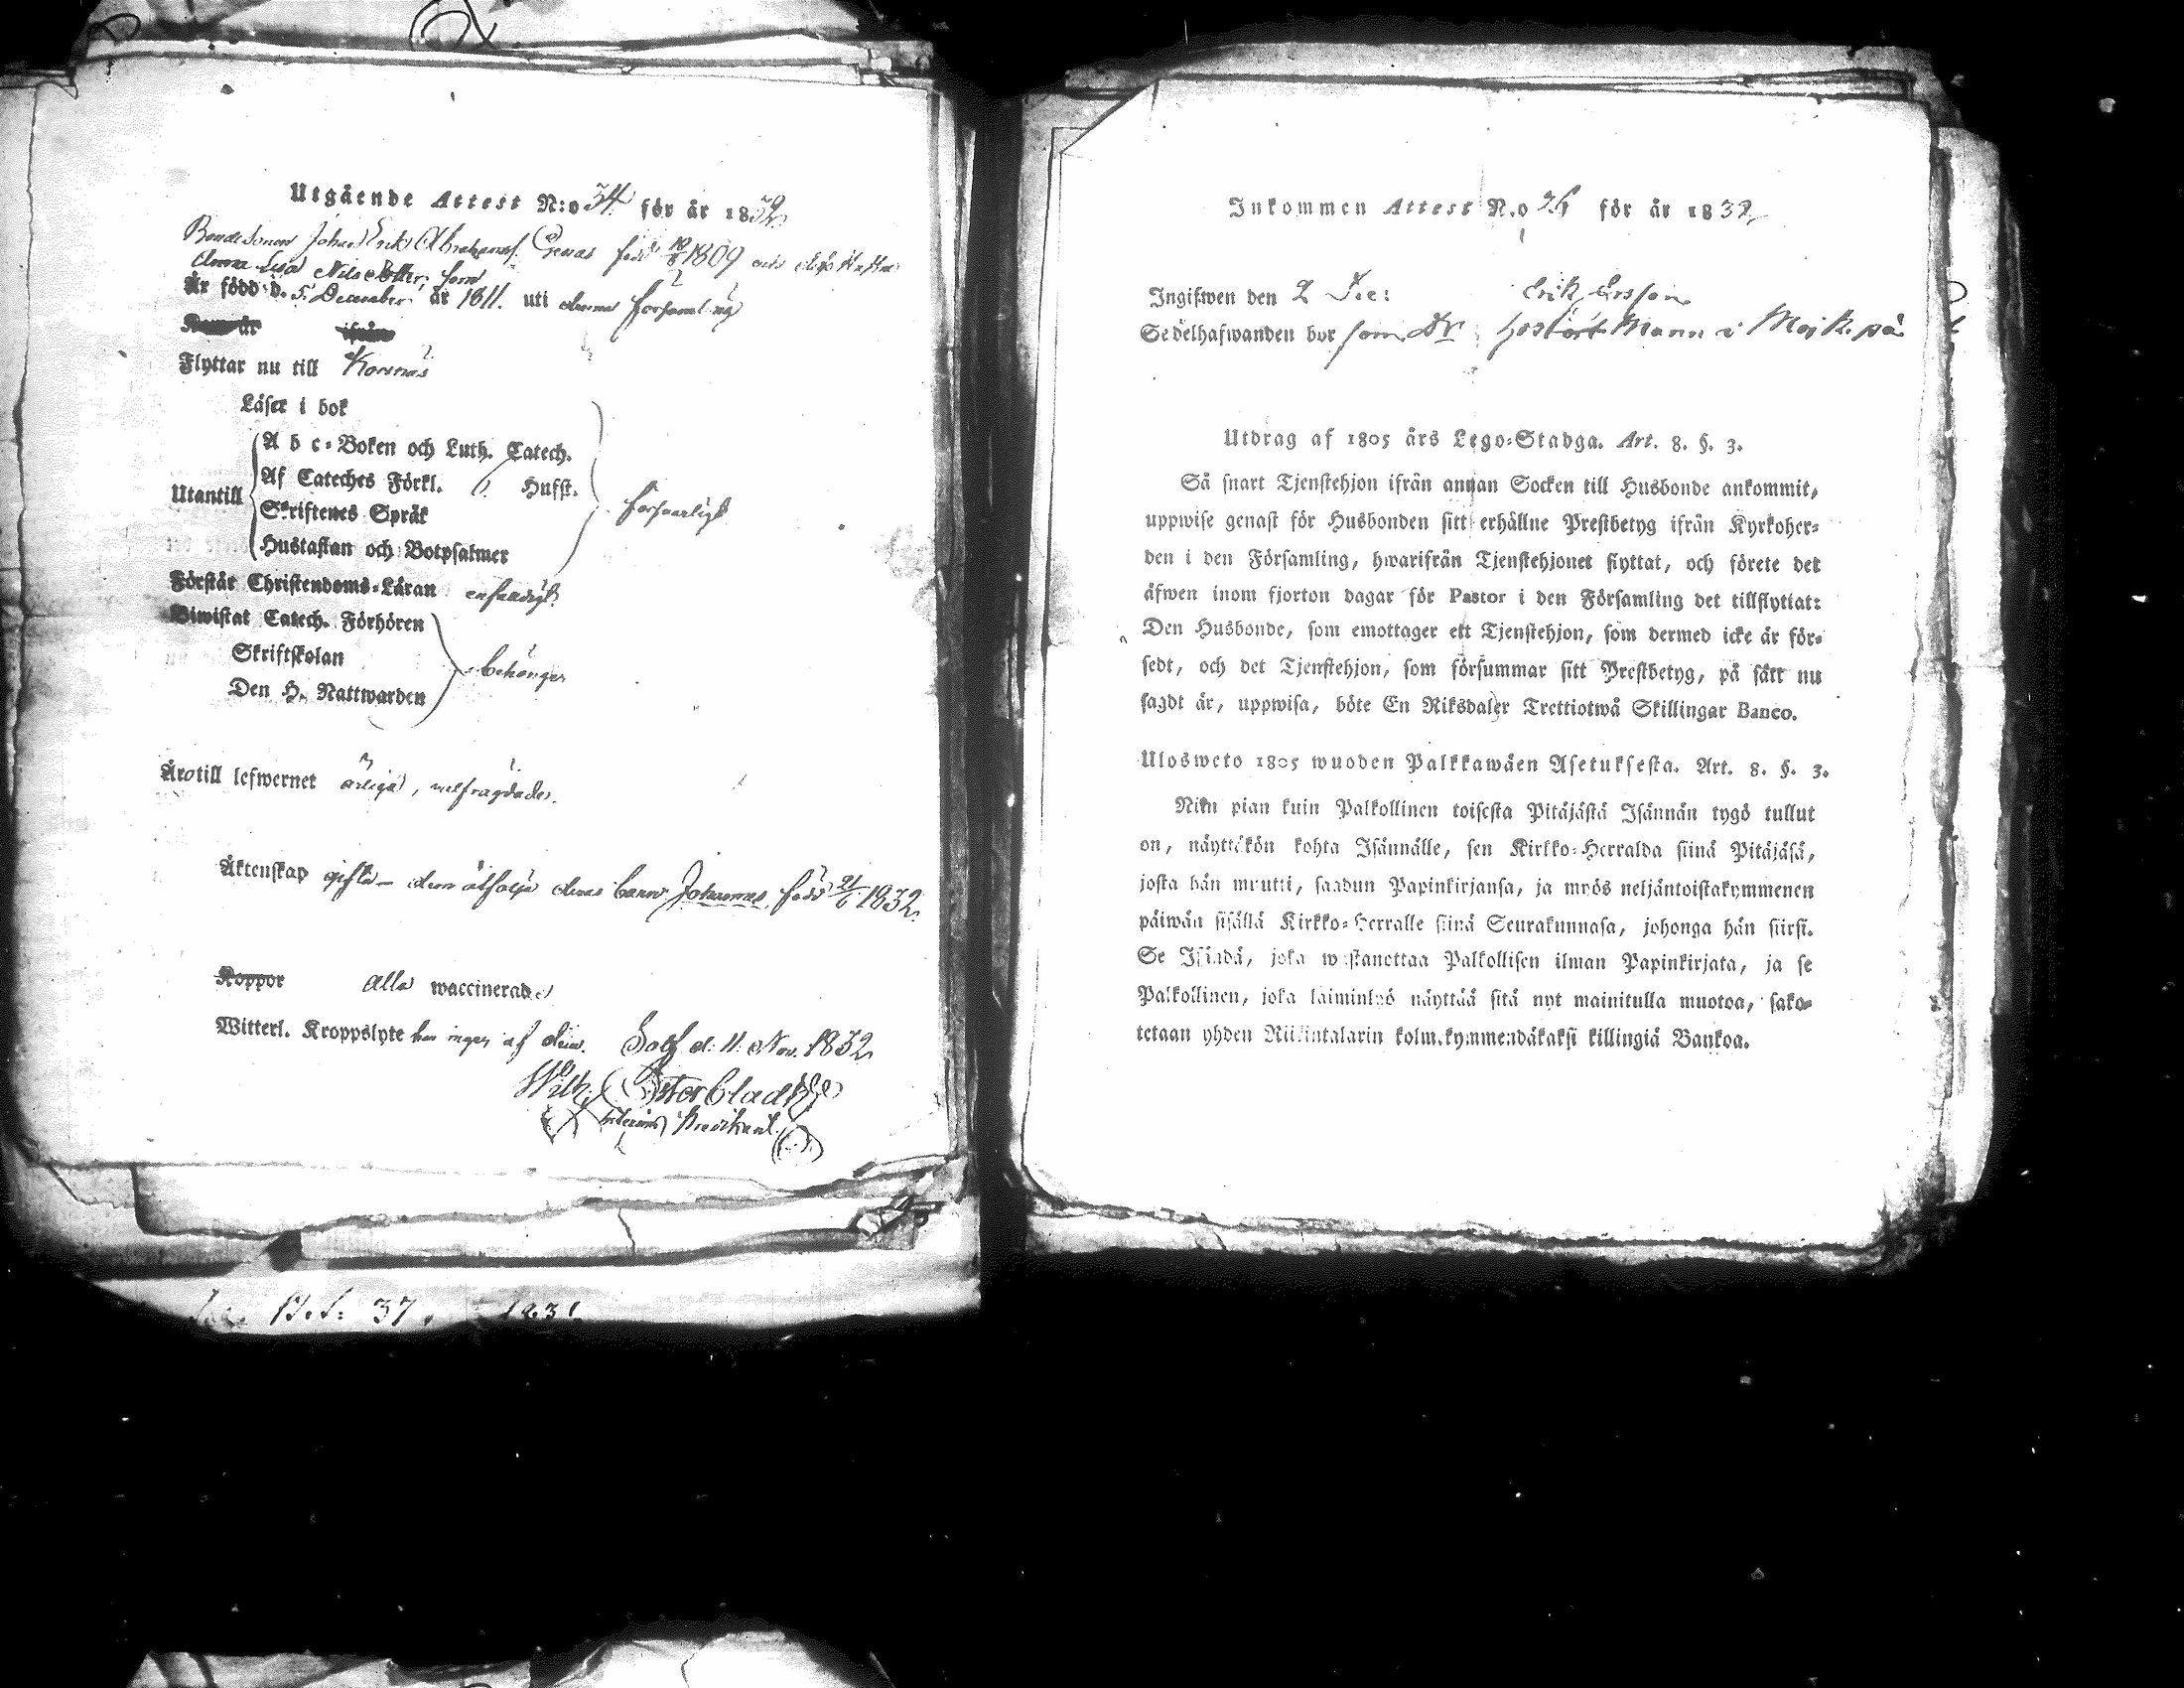 Utgående Attest N:o 34 för år 1832
Bondesonen Johan Erik Abrahamss. född 10/8 1809 och dess Hustru
Anna Lisa Nils dotter, som
Är född d. 5 December år 1811. uti denna församling
Kom år ifrån
Flyttar nu till Korsnäs
Läser i bok
A b c-Boken och Luth. Catech.
Af Cateches Förkl. Husst.
Utantill
Skriftenes Språk
försvarligt
Hustaflan och Botpsalmer
Förstår Christendoms-Läran enfaldigt.
Biwistat Catech. Förhören
Skriftskolan
behörigen
Den H. Nattwarden
Äro till lefwernet ärliga, välfrägdade.
Äktenskap gifta – dem åtföljer deras barn Johannes född 21/6 1832.
Koppor Alla waccinerade
Witterl. Kroppslyte har ingen af dem. Solf d. 11. Nov. 1832
Wilh. Österbladh
Interims Predikant.
37. 1831
Inkommen Attest N.o 26 för år 1832
Ingifwen den 2 Dec: Erik Ersson
Sedelhafwanden bor som Dr. hos Mann i på
Utdrag af 1805 års Lego-Stadga. Art. 8. §. 3.
Så snart Tjenstehjon ifrån annan Socken till Husbonde ankommit,
uppwise genast för Husbonden sitt erhållne Prestbetyg ifrån Kyrkoher-
den i den Församling, hwarifrån Tjenstehjonet flyttat, och förete det
äfwen inom fjorton dagar för Pastor i den Församling det tillflyttat:
Den Husbonde, som emottager ett Tjenstehjon, som dermed icke är för-
sedt, och det Tjenstehjon, som försummar sitt Prestbetyg, på sätt nu
sagdt är, uppwisa, böte En Riksdaler Trettiotwå Skillingar Banco.
Ulosweto 1805 wuoden Palkkawäen Asetuksesta. Art. 8. §. 3.
Niin pian kuin Palkollinen toisesta Pitäjästä Isännän tygö tullut
on, näyttäkön kohta Isännälle, sen Kirkko-Herralda siinä Pitäjäsä,
josta hän muutti, saadun Papinkirjansa, ja myös neljäntoistakymmenen
päiwän sisällä Kirkko-Herralle siinä Seurakunnasa, johonga hän siirsi.
Se Isändä, joka wastanottaa Palkollisen ilman Papinkirjata, ja se
Palkollinen, joka laiminlyö näyttää sitä nyt mainitulla muotoa, sako-
tetaan yhden Riikintalarin kolmekymmendäkaksi killingiä Bankoa.